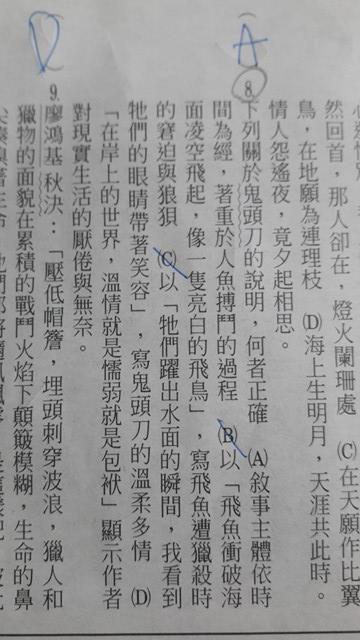 然回首，那人卻在，燈火闌珊處　(C)在天願作比翼
鳥，在地願為連理枝　(D)海上生明月，天涯共此時。
情人怨遙夜，竟夕起相思。
A
8. 下列關於鬼頭刀的說明，何者正確　(A)敘事主體依時
間為經，著重於人魚搏鬥的過程　(B)以「飛魚衝破海
面凌空飛起，像一隻亮白的飛鳥」，寫飛魚遭獵殺時
的窘迫與狼狽　(C)以「牠們躍出水面的瞬間，我看到
牠們的眼睛帶著笑容」，寫鬼頭刀的溫柔多情　(D)
「在岸上的世界，溫情就是懦弱就是包袱」顯示作者
對現實生活的厭倦與無奈。
D
9. 廖鴻基秋決：「壓低帽簷，埋頭刺穿波浪，獵人和
獵物的面貌在累積的戰鬥火焰下顛簸模糊，生命的鼻